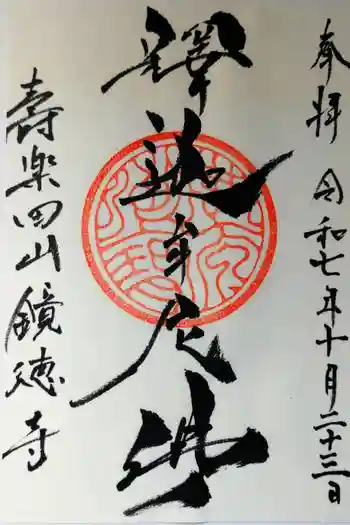 奉拝 令和七年十月二十三日
釋迦牟尼佛
寿楽四山鏡徳寺